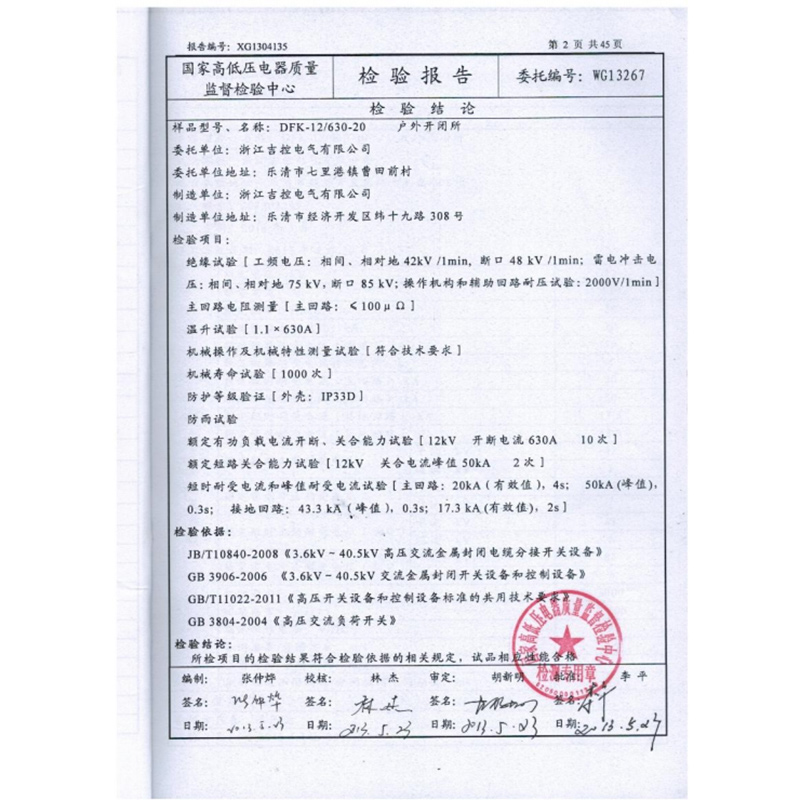 报告编号：XG1304135 第 2 页 共 45 页
国家高低压电器质量
监督检验中心
检验报告
委托编号：WG13267
检 验 结 论
样品型号、名称：DFK-12/630-20 户外开闭所
委托单位：浙江吉控电气有限公司
委托单位地址：乐清市七里港镇曹田前村
制造单位：浙江吉控电气有限公司
制造单位地址：乐清市经济开发区纬十九路 308 号
检验项目：
绝缘试验［工频电压：相间、相对地 42kV /1min, 断口 48 kV /1min；雷电冲击电
压：相间、相对地 75 kV, 断口 85 kV; 操作机构和辅助回路耐压试验：2000V/1min］
主回路电阻测量［主回路：≤100μΩ］
温升试验［1.1×630A］
机械操作及机械特性测量试验［符合技术要求］
机械寿命试验［1000 次］
防护等级验证［外壳：IP33D］
防雨试验
额定有功负载电流开断、关合能力试验［12kV 开断电流 630A 10 次］
额定短路关合能力试验［12kV 关合电流峰值 50kA 2 次］
短时耐受电流和峰值耐受电流试验［主回路：20kA（有效值），4s； 50kA (峰值)，
0.3s； 接地回路：43.3 kA（峰值），0.3s；17.3 kA (有效值)，2s］
检验依据：
JB/T10840-2008《3.6kV－40.5kV 高压交流金属封闭电缆分接开关设备》
GB 3906-2006 《3.6kV－40.5kV 交流金属封闭开关设备和控制设备》
GB/T11022-2011《高压开关设备和控制设备标准的共用技术要求》
GB 3804-2004《高压交流负荷开关》
检验结论：
所检项目的检验结果符合检验依据的相关规定，试品相应性能合格
国家高低压电器质量监督检验中心
检测专用章
编制： 张仲烨 校核： 林 杰 审定： 胡新明 批准： 李 平
签名： 张仲烨 签名： 林杰 签名： 签名：
日期： 2013.5.23 日期： 2013.5.23 日期： 2013.5.23 日期： 2013.5.27